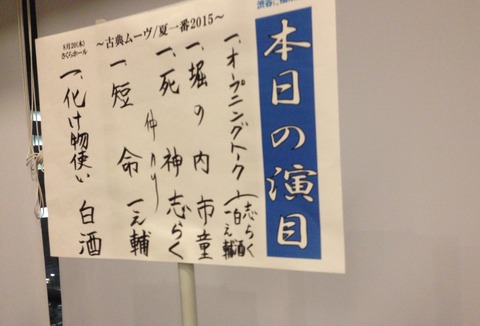 渋谷に
本日の演目
～古典ムーヴ/夏一番2015～
8月20(木)
さくらホール
一、オープニングトーク(志らく 白酒 一之輔)
一、堀の内 市童
一、死神 志らく
仲入り
一、短命 一之輔
一、化け物使い 白酒